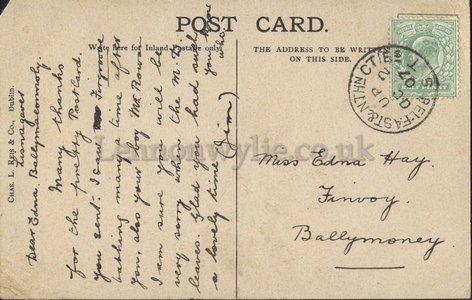 POST CARD.
Write here for Inland Postage only.
THE ADDRESS TO BE WRITTEN
ON THIS SIDE.
CHAS. L. REIS & CO., DUBLIN.
Lismacarey
Dear Edna. Ballymaconnely.
Many thanks
for the pretty Post Card.
you sent. I
bathing many a time after
you, also your boy Mr Rowan
I am sure you will be
very sorry when the M.T.
leaves. Glad you had such
a lovely time
(Jim)
you know
who
Miss Edna Hay.
Finvoy.
Ballymoney
BELFAST & NTHN C
UP
OC 2
07
Lennonwylie.co.uk